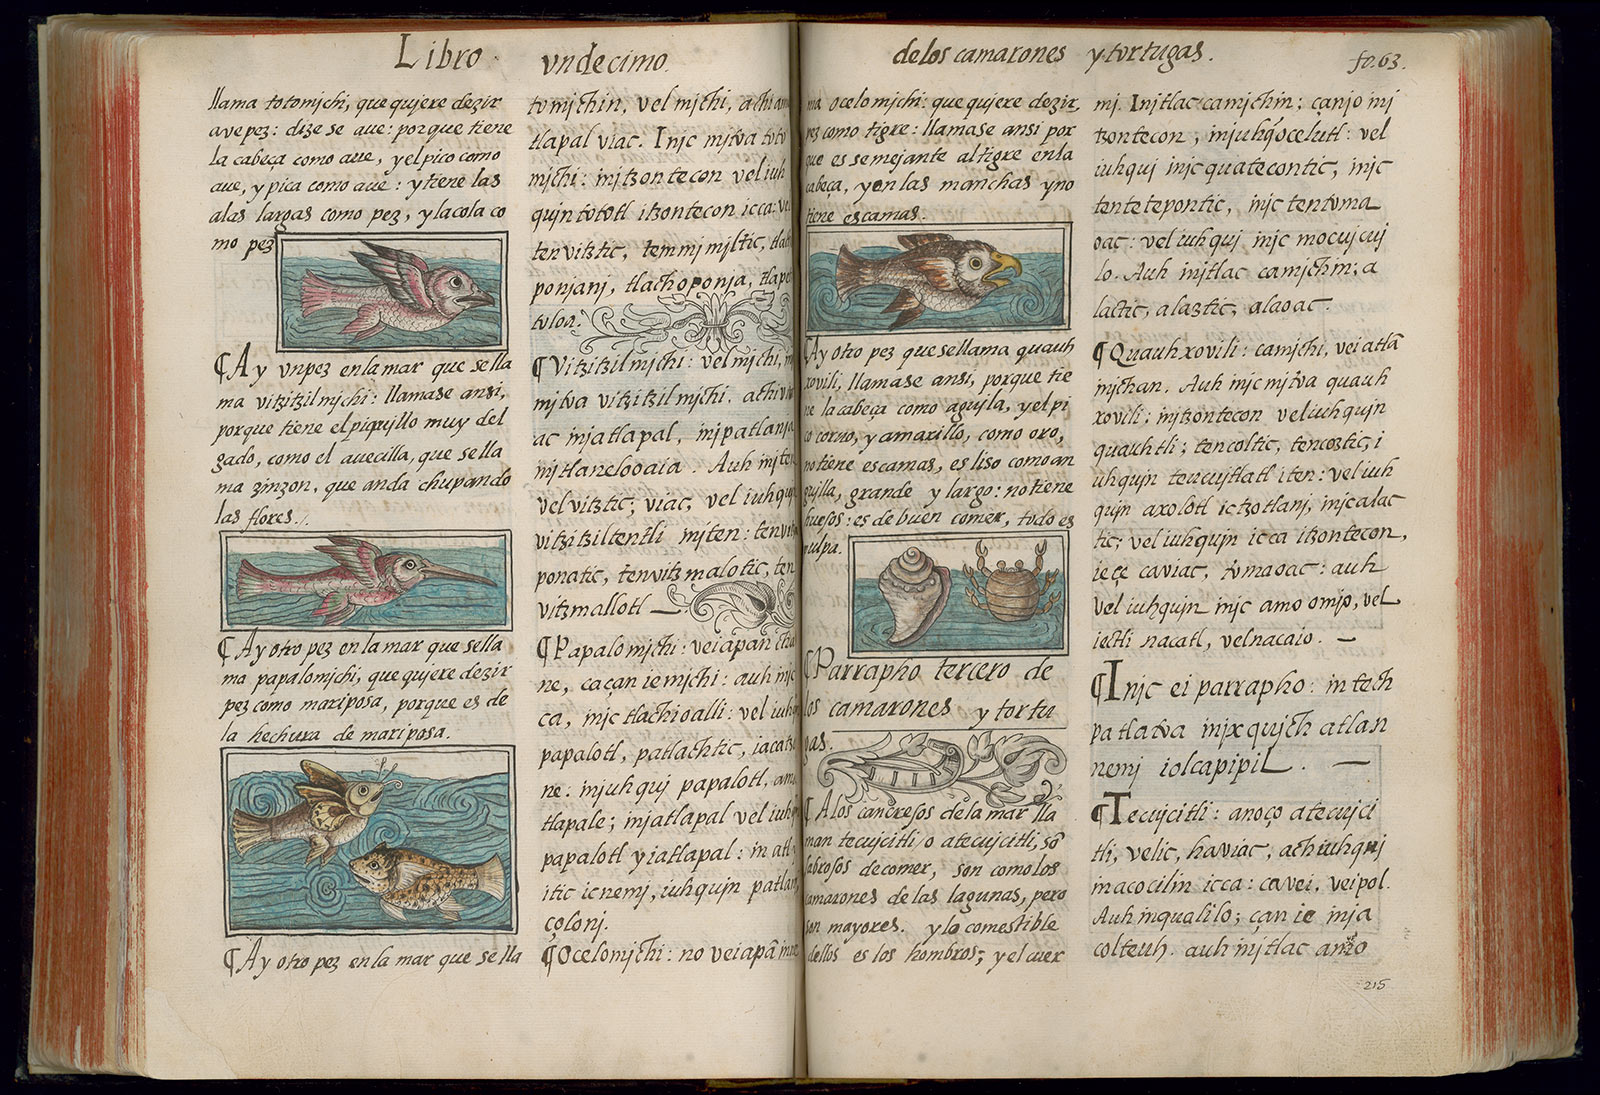 Libro
vndecimo.
llama totomichi, que quiere dezir
ave pez: dize se aue: porque tiene
la cabeça como aue, y el pico como
aue, y pica como aue: y tiene las
alas largas como pez, y la cola co
mo pez
¶ Ay vn pez en la mar que se lla
ma vitzitzil michi: llamase ansi,
porque tiene el piquillo muy del
gado, como el auecilla, que se lla
ma zinzon, que anda chupando
las flores.
¶ Ay otro pez en la mar que se lla
ma papalomichi, que quiere dezir
pez como mariposa, porque es de
la hechura de mariposa.
¶ Ay otro pez en la mar que se lla
tomichin, vel michi, achi
tlapal viac. Inic mitoa toto
michi: initzontecon vel iuh
quin tototl itzontecon icca:
tenvitztic, temmimiltic,
ponjani, tlachoponja,
toloa.
¶ Vitzitzil michi: vel michi,
mitoa vitzitzil michi. achi
ac iniatlapal, inipatlania
initlanelooaia. Auh initen
vel vitztic, viac, vel iuhqui
vitzitziltentli initen:
ponatic, tenvitzmalotic, ten
vitzmallotl —
¶ Papalo michi: vei apan
ne, caçan ie michi: auh inic
ca, inic tlachioalli: vel iuh
papalotl, patlachtic,
ne. iniuhqui papalotl,
tlapale; iniatlapal vel iuh
papalotl yiatlapal: in atl
itic ic nemi, iuhquin
çoloni.
¶ Ocelomichi: no vei apã
de los camarones y tortugas.
fo. 63.
ma ocelo michi: que quiere dezir,
pez como tigre: llamase ansi por
que es semejante al tigre en la
cabeça, y en las manchas y no
tiene escamas.
Ay otro pez que se llama quauh
xovili, llamase ansi, porque tie
ne la cabeça como aguila, y el pi
co corvo, y amarillo, como oro,
no tiene escamas, es liso como an
guilla, grande y largo: no tiene
huesos: es de buen comer, todo es
pulpa.
¶ Parrapho tercero de
los camarones y tortu
gas.
¶ A los cancrejos de la mar lla
man tecuicitli o atecuicitli, sõ
sabrosos de comer, son como los
camarones de las lagunas, pero
son mayores. y lo comestible
dellos es los hombros; y el cuer
mi. Initlac camichin; çanjo ini
tzontecon, iniuhqocelutl: vel
iuhqui inic quatecontic, inic
tentetepontic, inic tentoma
oac: vel iuhqui inic mocuicui
lo. Auh initlac camichim; a
lactic, alaztic, alaoac.
¶ Quauhxovili: camichi, vei atlã
inichan. Auh inic mitoa quauh
xovili: initzontecon vel iuhquin
quauhtli; tencoltic, tencoztic; i
uhquin teucuitlatl iten: vel iuh
quin axolotl ictzotlani, inic alac
tic; vel iuhquin icca itzontecon,
ieçe caviac, tomaoac: auh
vel iuhquin inic amo omio, vel
iectli nacatl, velnacaio. —
¶ Inic ei parrapho: intech
patlatoa inixquich atlan
nemi iolcapipil. —
¶ Tecuicitli: anoço atecuici
tli, velic, haviac, achiuhqui
in acocilin icca: ca vei, veipol.
Auh in qualilo; çan ie inia
colteuh. auh initlac
215